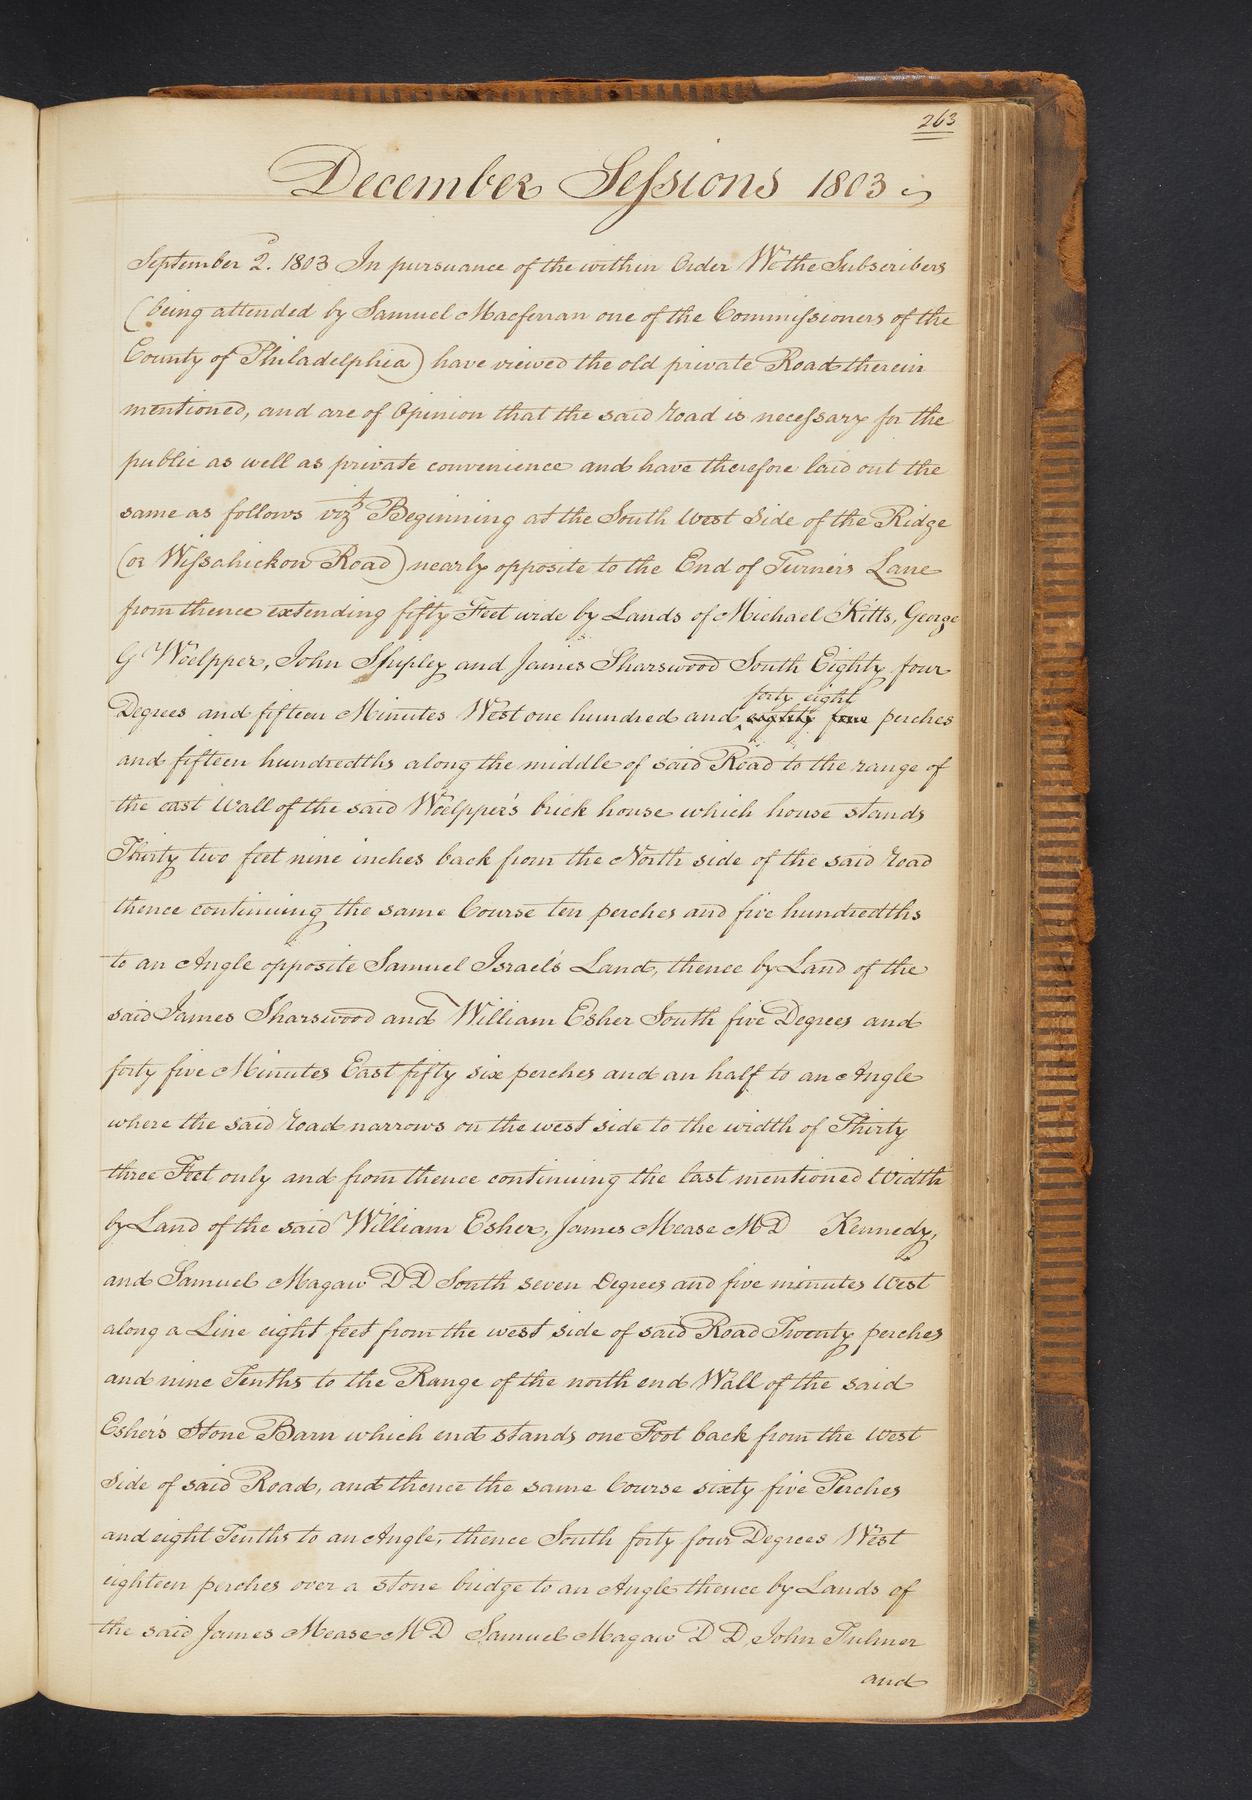 263
December Sessions 1803
September 2d. 1803 In pursuance of the within Order We the Subscribers
(being attended by Samuel Macferran one of the Commissioners of the
County of Philadelphia) have viewed the old private Road therein
mentioned, and are of Opinion that the said road is necessary for the
public as well as private convenience and have therefore laid out the
same as follows vizt Beginning at the South West Side of the Ridge
(or Wissahickon Road) nearly opposite to the End of Turner's Lane
from thence extending fifty Feet wide by Lands of Michael Kitts, George
G Woelpper, John Shipley and James Sharswood South Eighty four
forty eight
Degrees and fifteen Minutes West one hundred and eighty four perches
and fifteen hundredths along the middle of said Road to the range of
the east Wall of the said Woelpper's brick house which house stands
Thirty two feet nine inches back from the North side of the said road
thence continuing the same Course ten perches and five hundredths
to an Angle opposite Samuel Israel's Land, thence by Land of the
said James Sharswood and William Esher South five Degrees and
forty five Minutes East fifty six perches and an half to an Angle
where the said road narrows on the west side to the width of Thirty
three Feet only and from thence continuing the last mentioned Width
by Land of the said William Esher, James Mease MD Kennedy,
and Samuel Magaw DD South seven Degrees and five minutes West
along a Line eight feet from the west side of said Road Twenty perches
and nine Tenths to the Range of the north end Wall of the said
Esher's Stone Barn which end stands one Foot back from the West
Side of said Road, and thence the same Course sixty five Perches
and eight Tenths to an Angle, thence South forty four Degrees West
eighteen perches over a stone bridge to an Angle thence by Lands of
the said James Mease MD Samuel Magaw DD, John Fulmer
and